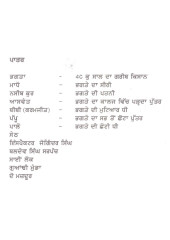 ਪਾਤਰ
ਭਗਤਾ - 40 ਕੁ ਸਾਲ ਦਾ ਗਰੀਬ ਕਿਸਾਨ
ਮਾਧੋ - ਭਗਤੇ ਦਾ ਸੀਰੀ
ਨਸੀਬ ਕੁਰ - ਭਗਤੇ ਦੀ ਪਤਨੀ
ਆਸਵੰਤ - ਭਗਤੇ ਦਾ ਕਾਲਜ ਵਿੱਚ ਪੜ੍ਹਦਾ ਪੁੱਤਰ
ਬੀਬੀ (ਕਰਮਜੀਤ) - ਭਗਤੇ ਦੀ ਮੁਟਿਆਰ ਧੀ
ਪੱਪੂ - ਭਗਤੇ ਦਾ ਸਭ ਤੋਂ ਛੋਟਾ ਪੁੱਤਰ
ਪਾਲੋ - ਭਗਤੇ ਦੀ ਛੋਟੀ ਧੀ
ਸੇਠ
ਇੰਸਪੈਕਟਰ ਜੋਗਿੰਦਰ ਸਿੰਘ
ਬਲਦੇਵ ਸਿੰਘ ਸਰਪੰਚ
ਸਾਈਂ ਲੋਕ
ਗੁਆਂਢੀ ਮੁੰਡਾ
ਦੋ ਮਜ਼ਦੂਰ